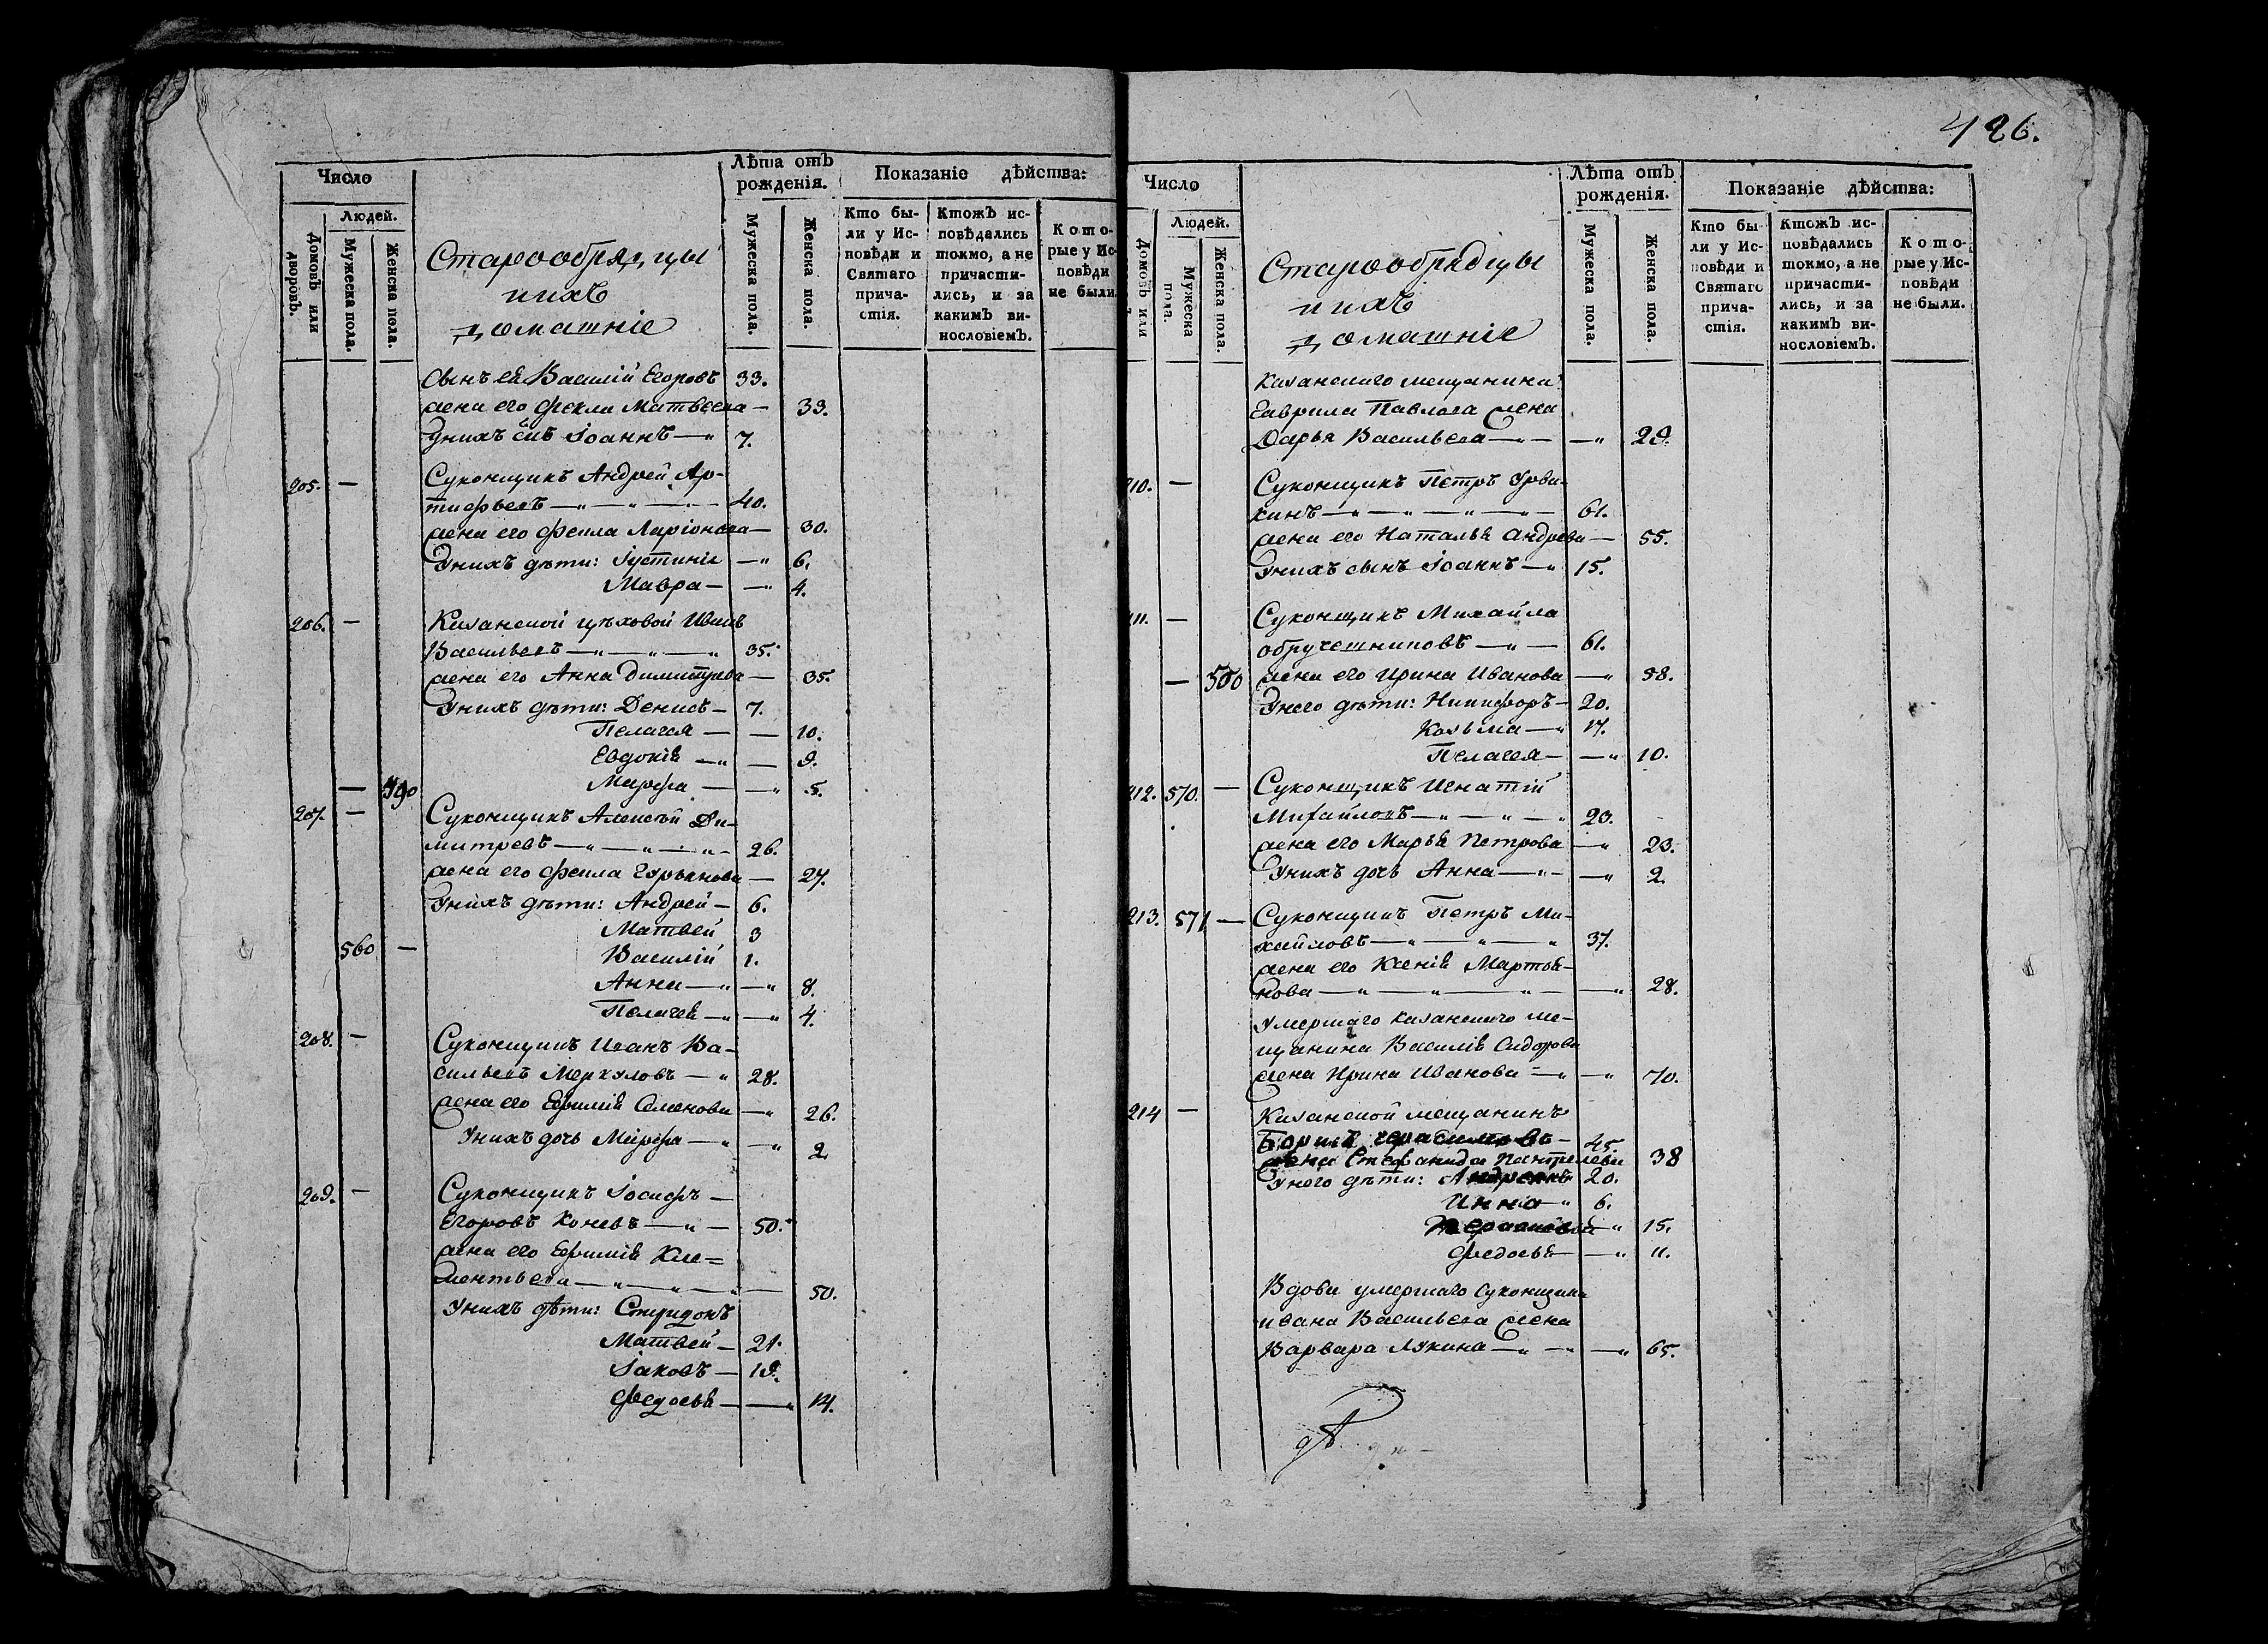 Число
Людей.
Домовъ или дворовъ.
Мужеска пола.
Женска пола.
Старообрядцы
и ихъ
домашніе
Лѣта отъ
рожденія.
Мужеска пола.
Женска пола.
Показаніе дѣйства:
Кто бы-
ли у Ис-
повѣди и
Святаго
прича-
стія.
Ктожъ ис-
повѣдались
токмо, а не
причасти-
лись, и за
какимъ ви-
нословіемъ.
Кото-
рые у Ис-
повѣди
не были.
сынъ ея Василій Егоровъ 33.
жена его Фекла Матвеева — 33.
У нихъ сынъ Іоаннъ — 7.
205. — Суконщикъ Андрей Ар-
тифьевъ — " — " — 40.
жена его Фекла Ларіонова — 30.
У нихъ дѣти: Іустинія — " 6.
Мавра — — " 4.
206. — Казанской цѣховой Иванъ
Васильевъ — " — " — " 35.
жена его Анна Димитрева — 35.
У нихъ дѣти: Денисъ — 7.
Пелагея — — 10.
Евдокія — " — 9.
— 490 Марфа — — " 5.
207. — Суконщикъ Алексѣй Ди-
митревъ — " — " — " — 26.
жена его Фекла Гурьянова — 27.
У нихъ дѣти: Андрей — 6.
Матвей 3
560 — Василій 1.
Анна — " — " 8.
Пелагея — " — " 4.
208. — Суконщикъ Иванъ Ва-
сильевъ Меркуловъ — " 28.
жена его Ефимія Семенова — " 26.
У нихъ дочь Марфа — " — " 2.
209. — Суконщикъ Іосифъ —
Егоровъ Коневъ — " — 50.
жена его Ефимія Кле=
ментьева — " — " — " — 50.
У нихъ дѣти: Спиридонъ
Матвей — 21.
Іаковъ — 19.
Федосья — — " 14.
426.
Число
Людей.
Домовъ или
Мужеска пола.
Женска пола.
Старообрядцы
и ихъ
домашніе
Лѣта отъ
рожденія.
Мужеска пола.
Женска пола.
Показаніе дѣйства:
Кто бы-
ли у Ис-
повѣди и
Святаго
прича-
стія.
Ктожъ ис-
повѣдались
токмо, а не
причасти-
лись, и за
какимъ ви-
нословіемъ.
Кото-
рые у Ис-
повѣди
не были.
Казанскаго мещанина
Гаврила Павлова жена
Дарья Васильева — " — — " 29.
210. — Суконщикъ Петръ Урви-
хинъ — " — " — " — " — 61.
жена его Наталья Андреева — 55.
У нихъ сынъ Іоаннъ — " 15.
211. — Суконщикъ Михайла
Обручешниковъ — " — 61.
— 500 жена его Ирина Иванова — " 58.
У него дѣти: Никифоръ — 20.
Козьма — " 17.
Пелагея — — " 10.
212. 570. — Суконщикъ Игнатій
Михайловъ — " — " — " 23.
жена его Марья Петрова — " 23.
У нихъ дочь Анна — " — — " 2.
213. 571 — Суконщикъ Петръ Ми-
хайловъ — " — " — " 37.
жена его Ксенія Мартья-
нова — " — " — " — — " 28.
Умершаго казанскаго ме-
щанина Василія Сидорова
жена Ирина Иванова — " — " 70.
214 — Казанской мещанинъ
Борисъ Герасимовъ — 45.
жена Степанида Пантелеева 38
У него дѣти: 20.
Инна — " 6.
— " 15.
Федосья — — " 11.
Вдова умершаго суконщика
Ивана Васильева жена
Варвара Лукина — " — " — " 65.